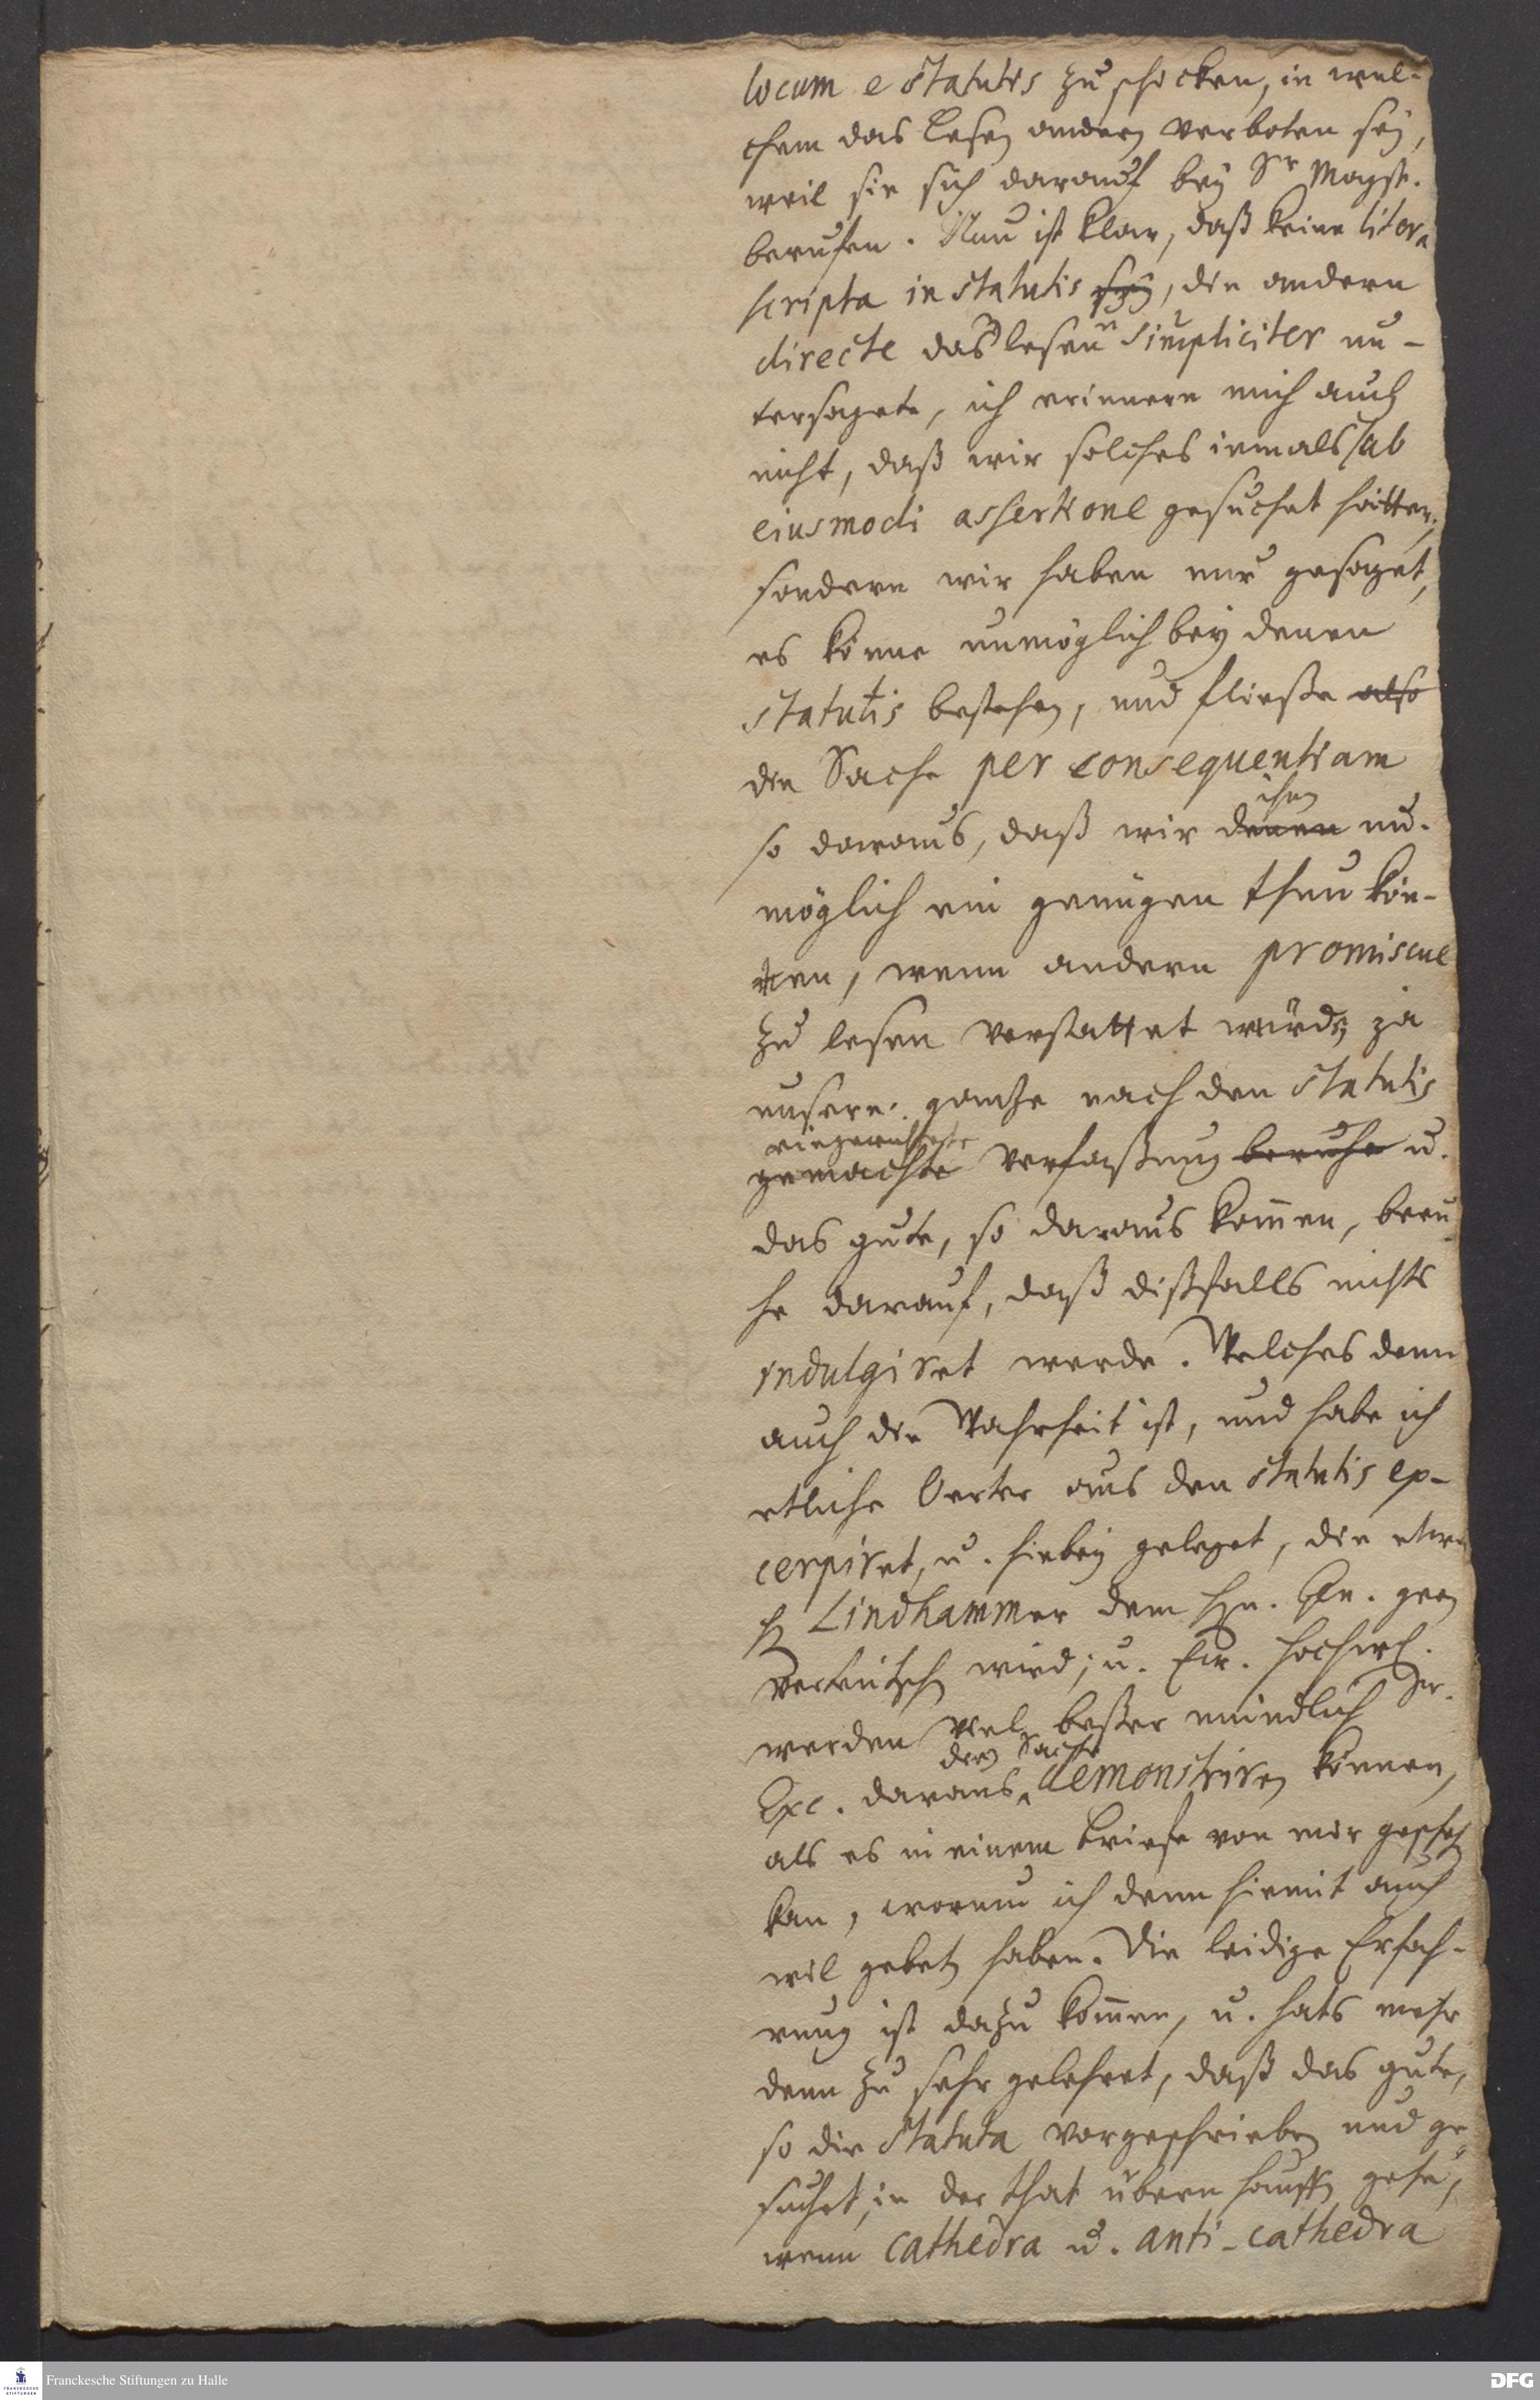 locum e statutis zu schicken, in wel-
chem das lesen andern verboten sey,
weil sie sich darauf bey Sr Mayst.
berufen. Nun ist klar, daß keine litera
scripta in statutis sey, die andern
directe das lesen simpliciter un-
tersagete, ich erinnere mich auch
nicht, daß wir solches iemals ab
eiusmodi assertione gesuchet hätten,
sondern wir haben nur gesaget,
es könne unmöglich bey denen
statutis bestehen, und fließe also
die Sache per consequentiam
ihnen
so daraus, daß wir denen un-
möglich ein genügen thun kön-
ten, wenn andern promiscue
zu lesen verstattet würde, ja
unsere gantze nach den statutis
eingerichtete
gemachte verfaßung beruhe u.
das gute, so daraus kommen, beru-
he darauf, daß dißfalls nichts
indulgiret werde. Welches denn
auch die Wahrheit ist, und habe ich
etliche Oerter aus den statutis ex-
cerpiret, u. hiebey geleget, die etwa
H Lindhammer dem Hn. Gn. gern
verteutschen wird; u. Ew. Hochw.
werden viel beßer mündlich Sr.
die Sache
Exc. daraus demonstriren können,
als es in einem briefe von mir geschehen
kan, worum ich denn hiemit auch
wil gebeten haben. Die leidige Erfah-
rung ist dazu kommen, u. hats mehr
denn zu sehr gelehret, daß das gute,
so die statuta vorgeschrieben und ge-
suchet, in der that übern hauffen gehe,
wenn cathedra u. anti-cathedra
Franckesche Stiftungen zu Halle
FRANCKESCHE STIFTUNGEN
DFG